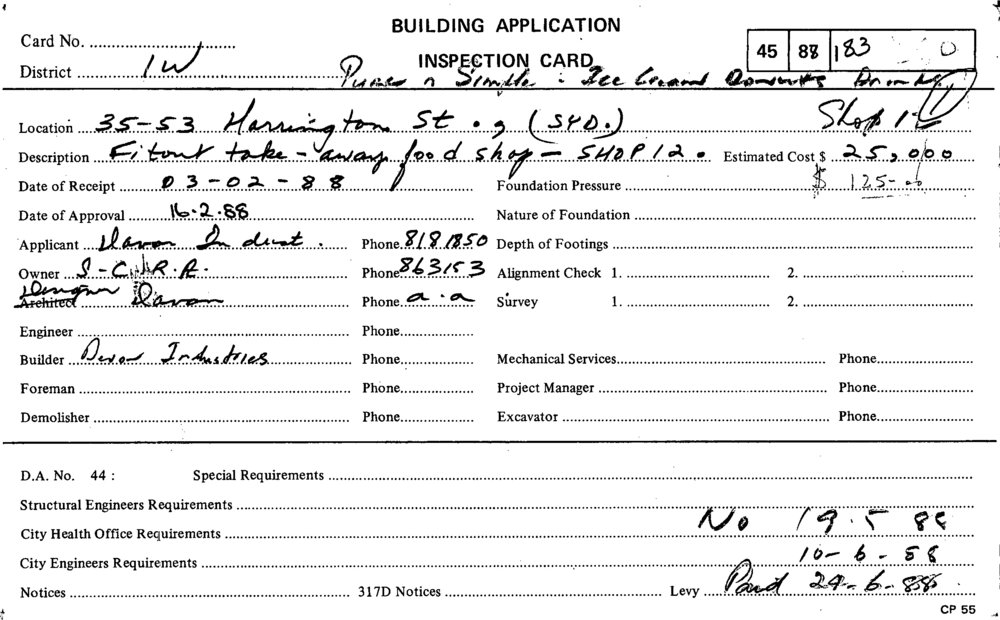 BUILDING APPLICATION
Card No.
45 88 183 0
INSPECTION CARD
District 1W
Pure n Simple : Ice Cream Donuts Drinks
Location 35-53 Harrington St. (SYD.) Shop 12
Description Fitout take-away food shop - SHOP 12. Estimated Cost $ 25,000
Date of Receipt 03-02-88 Foundation Pressure $125-00
Date of Approval 16.2.88 Nature of Foundation
Applicant Davon Indust. Phone 818 1850 Depth of Footings
Owner S.C.R.A. Phone 863153 Alignment Check 1. 2.
Designer
Architect Davon Phone a.a Survey 1. 2.
Engineer Phone
Builder Industries Phone Mechanical Services Phone
Foreman Phone Project Manager Phone
Demolisher Phone Excavator Phone
D.A. No. 44 : Special Requirements
Structural Engineers Requirements
City Health Office Requirements No 19.5 88
City Engineers Requirements 10-6-88
Notices 317D Notices Levy Paid 29-6-88
CP 55